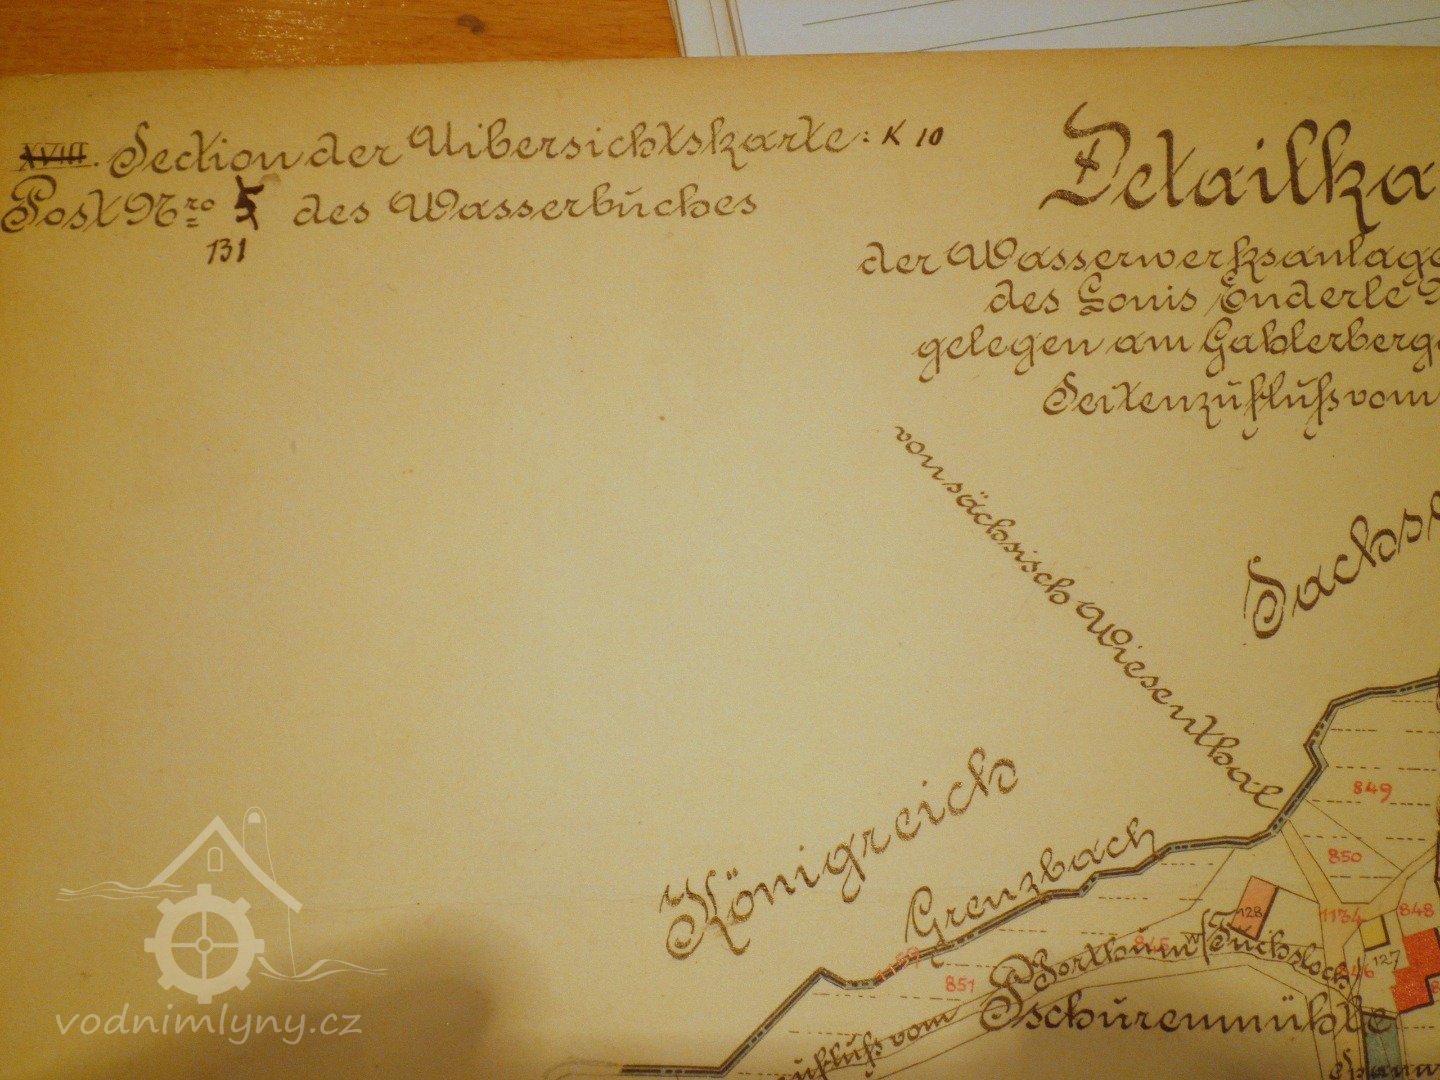 XVIII. Section der Uibersichtskarte: K 10
Post Nro 5 des Wasserbuches
131
Detailka
der Wasserwerksanlage
des Louis Enderle
gelegen am Gahlerberg
Seitenzufluß vom
von sächsisch Wiesenthal
Sachs
Königreich
Grenzbach
849
850
1134
848
128
127
846
851
Tschürenmühle
zufluß vom
vodnimlyny.cz